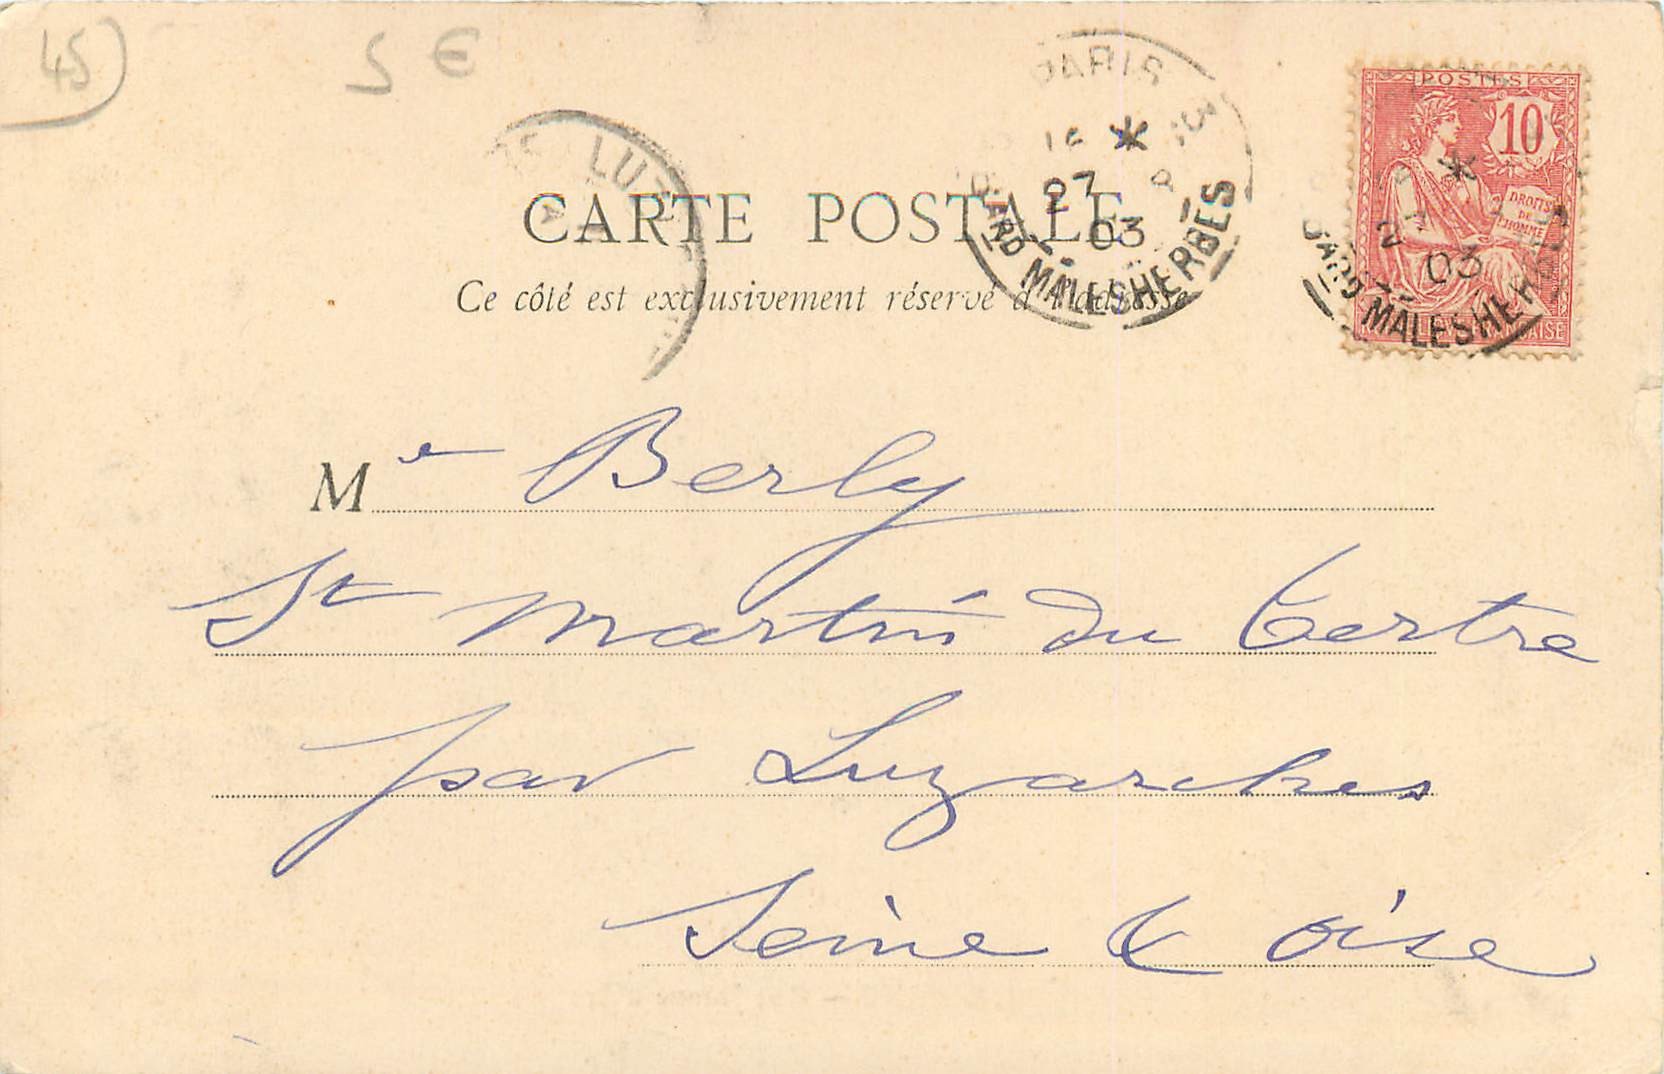 45
5 €
POSTES
10
DROITS
DE
L'HOMME
PARIS 3
27
03
MALESHERBES
LUZ
CARTE POSTALE
Ce côté est exclusivement réservé à l'adresse
03
MALESHER
Me Berly
St Martin du Tertre
par Luzarches
Seine & Oise